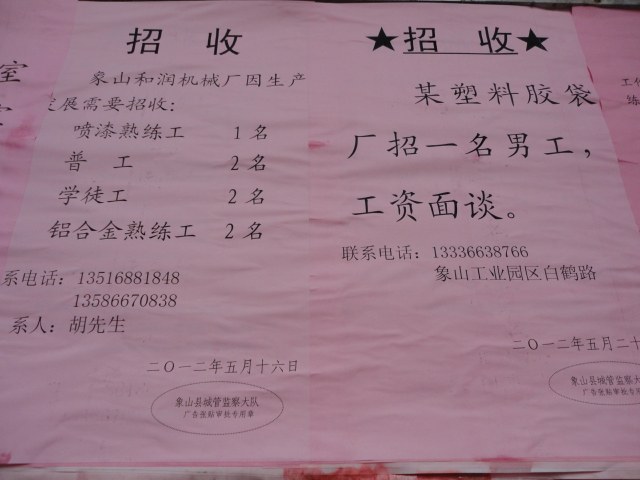 招 收
象山和润机械厂因生产
发展需要招收：
喷漆熟练工 1名
普 工 2名
学徒工 2名
铝合金熟练工 2名
系电话：13516881848
13586670838
系人：胡先生
二〇一二年五月十六日
象山县城管监察大队
广告张贴审批专用章
★招 收★
某塑料胶袋
厂招一名男工，
工资面谈。
联系电话：13336638766
象山工业园区白鹤路
二〇一二年五月二十
象山县城管监察大
广告张贴审批专用
室
工作
练